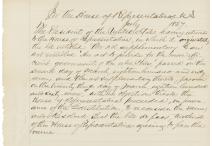 In the House of Representatives, U.S.
July 1867.
The President of the United States having returned
to the House of Representatives, in which it originated,
the bill entitled "An act supplementary to an
act entitled 'An act to provide for the more
government of the rebel States' passed on
the second day of March, eighteen hundred and
sixty-seven, and the act supplementary thereto, passed
on the twenty-third day of March, eighteen hundred
and sixty-seven, with his objections thereto, the
House of Representatives proceeded, in pursuance
of the Constitution, to reconsider the same;
and Resolved, That the bill do pass, two thirds
of the House of Representatives agreeing to pass the
same.